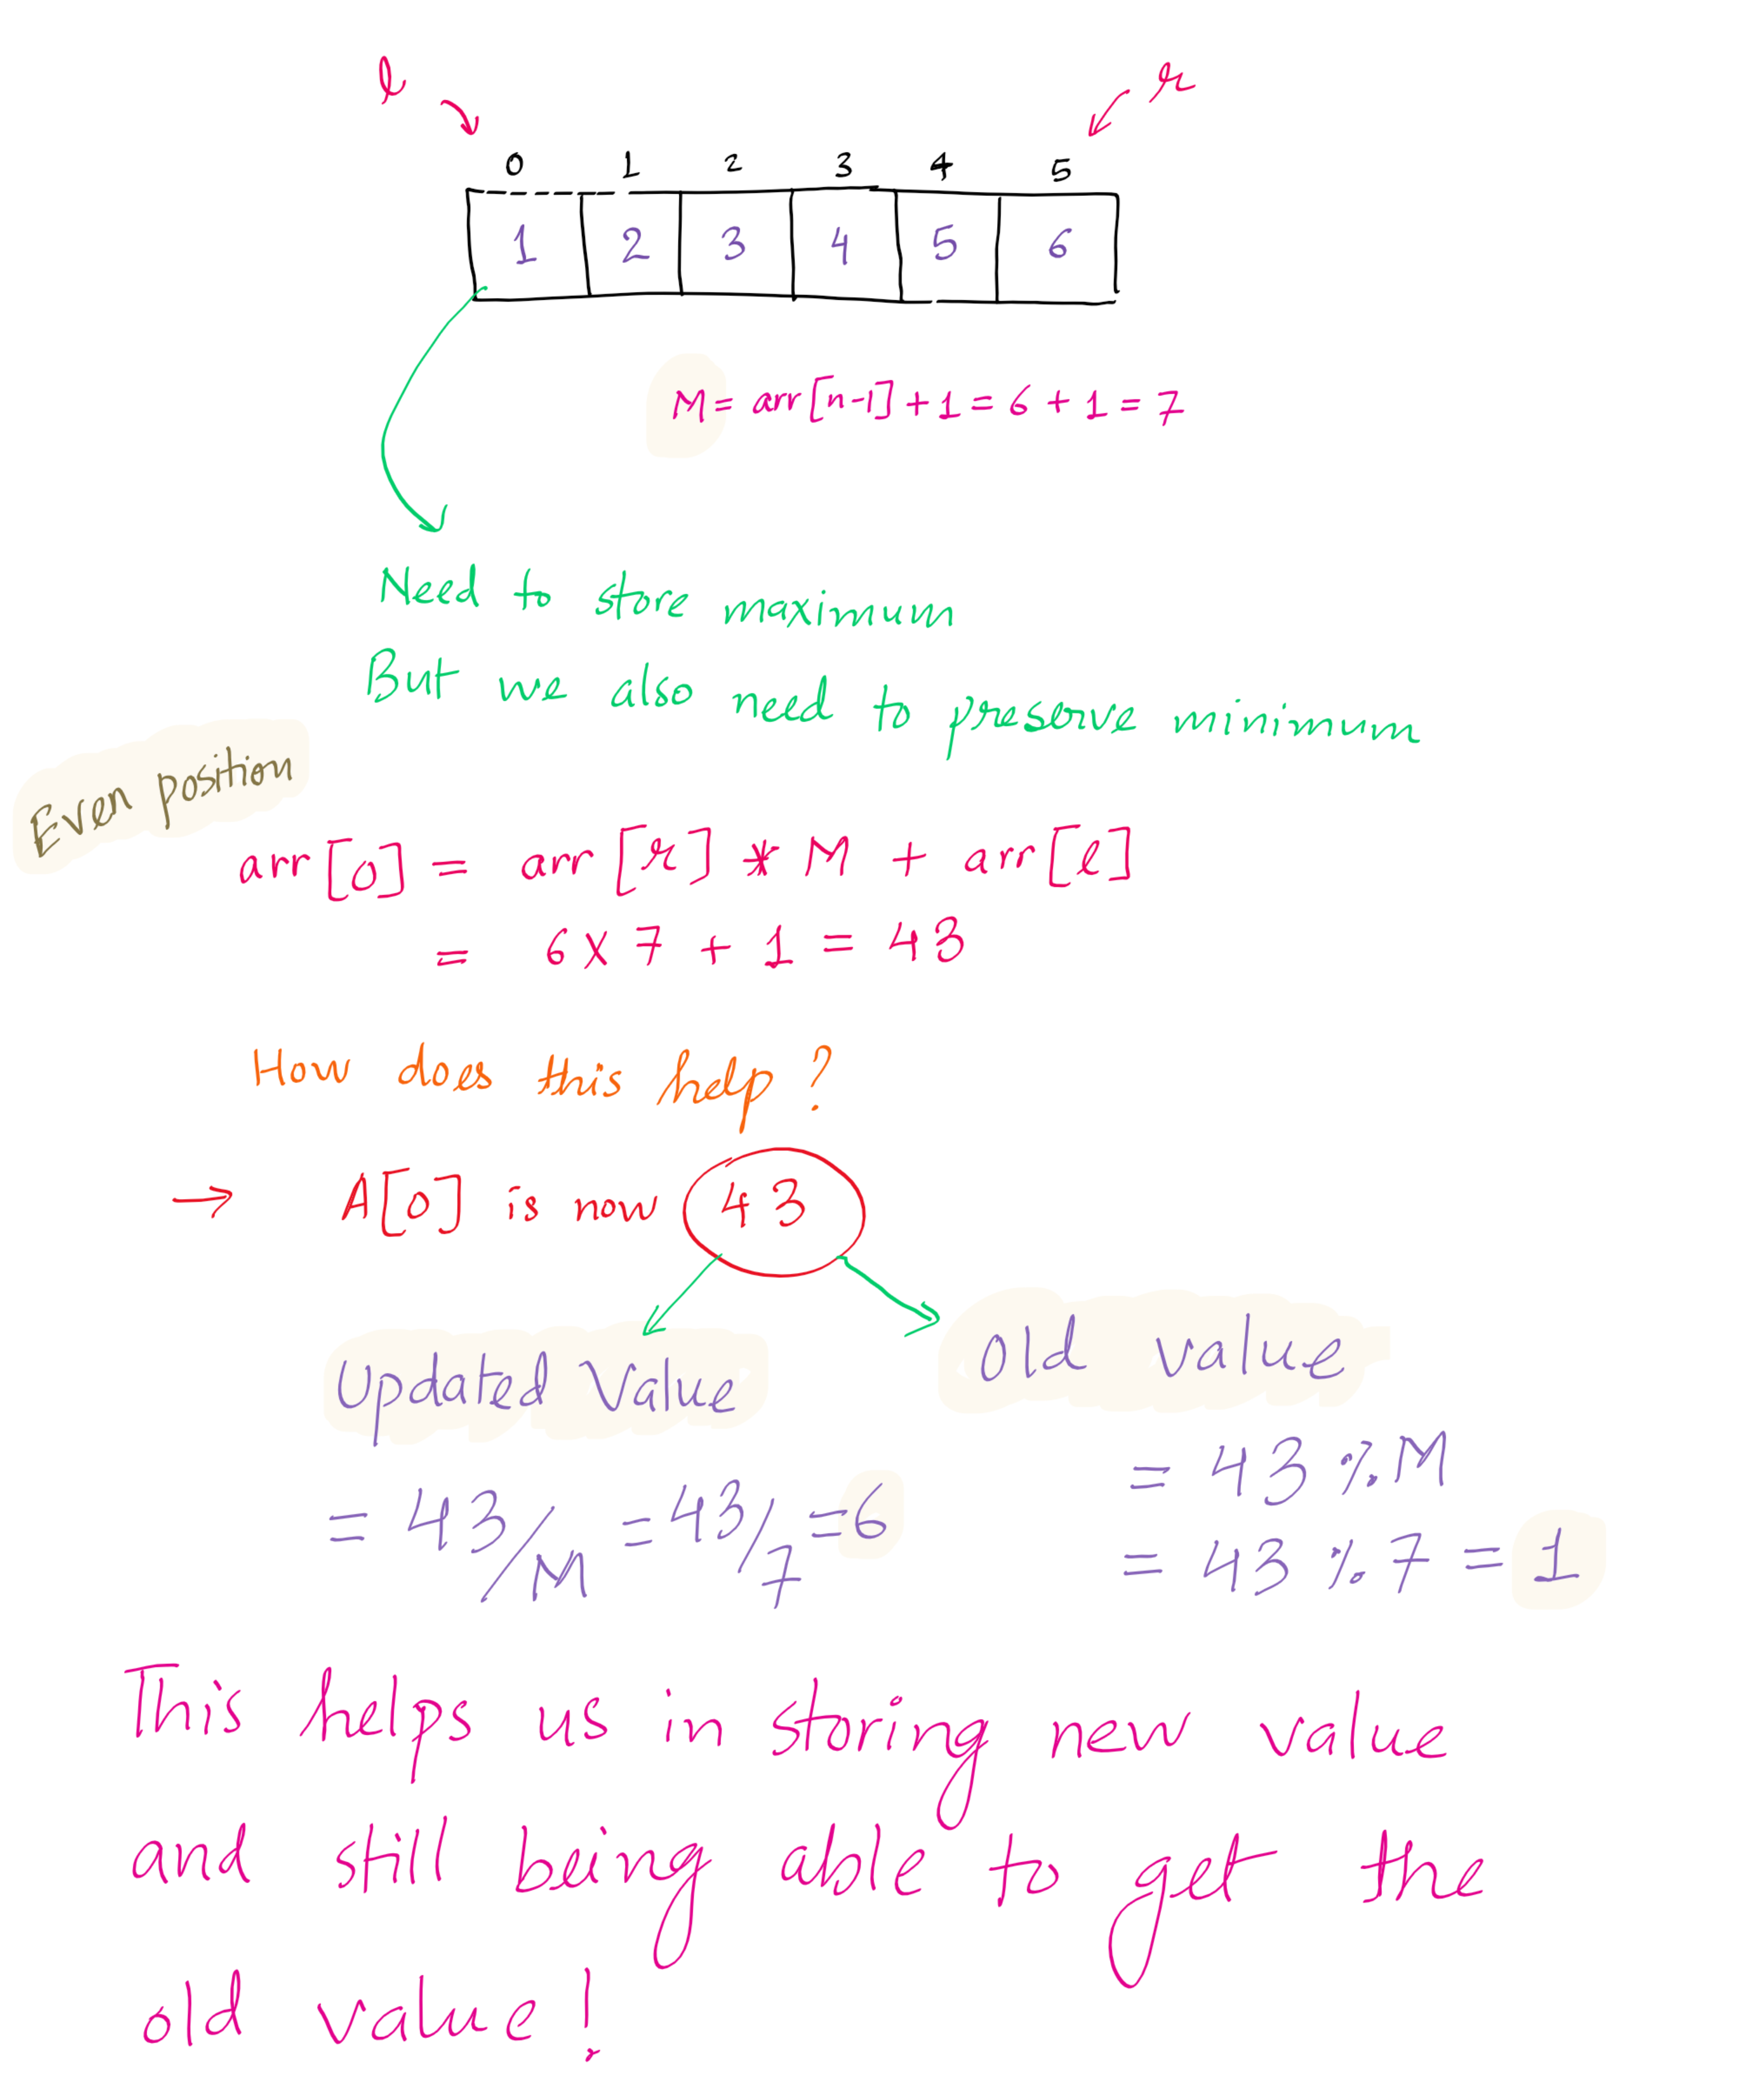 l r
0 1 2 3 4 5
1 2 3 4 5 6
M = arr[n-1] + 1 = 6 + 1 = 7
Need to store maximum
But we also need to preserve minimum
Even position
arr[0] = arr[r] * M + arr[l]
= 6 x 7 + 1 = 43
How does this help?
→ A[0] is now 43
Updated Value
= 43/M = 43/7 = 6
Old value
= 43 % M
= 43 % 7 = 1
This helps us in storing new value
and still being able to get the
old value!